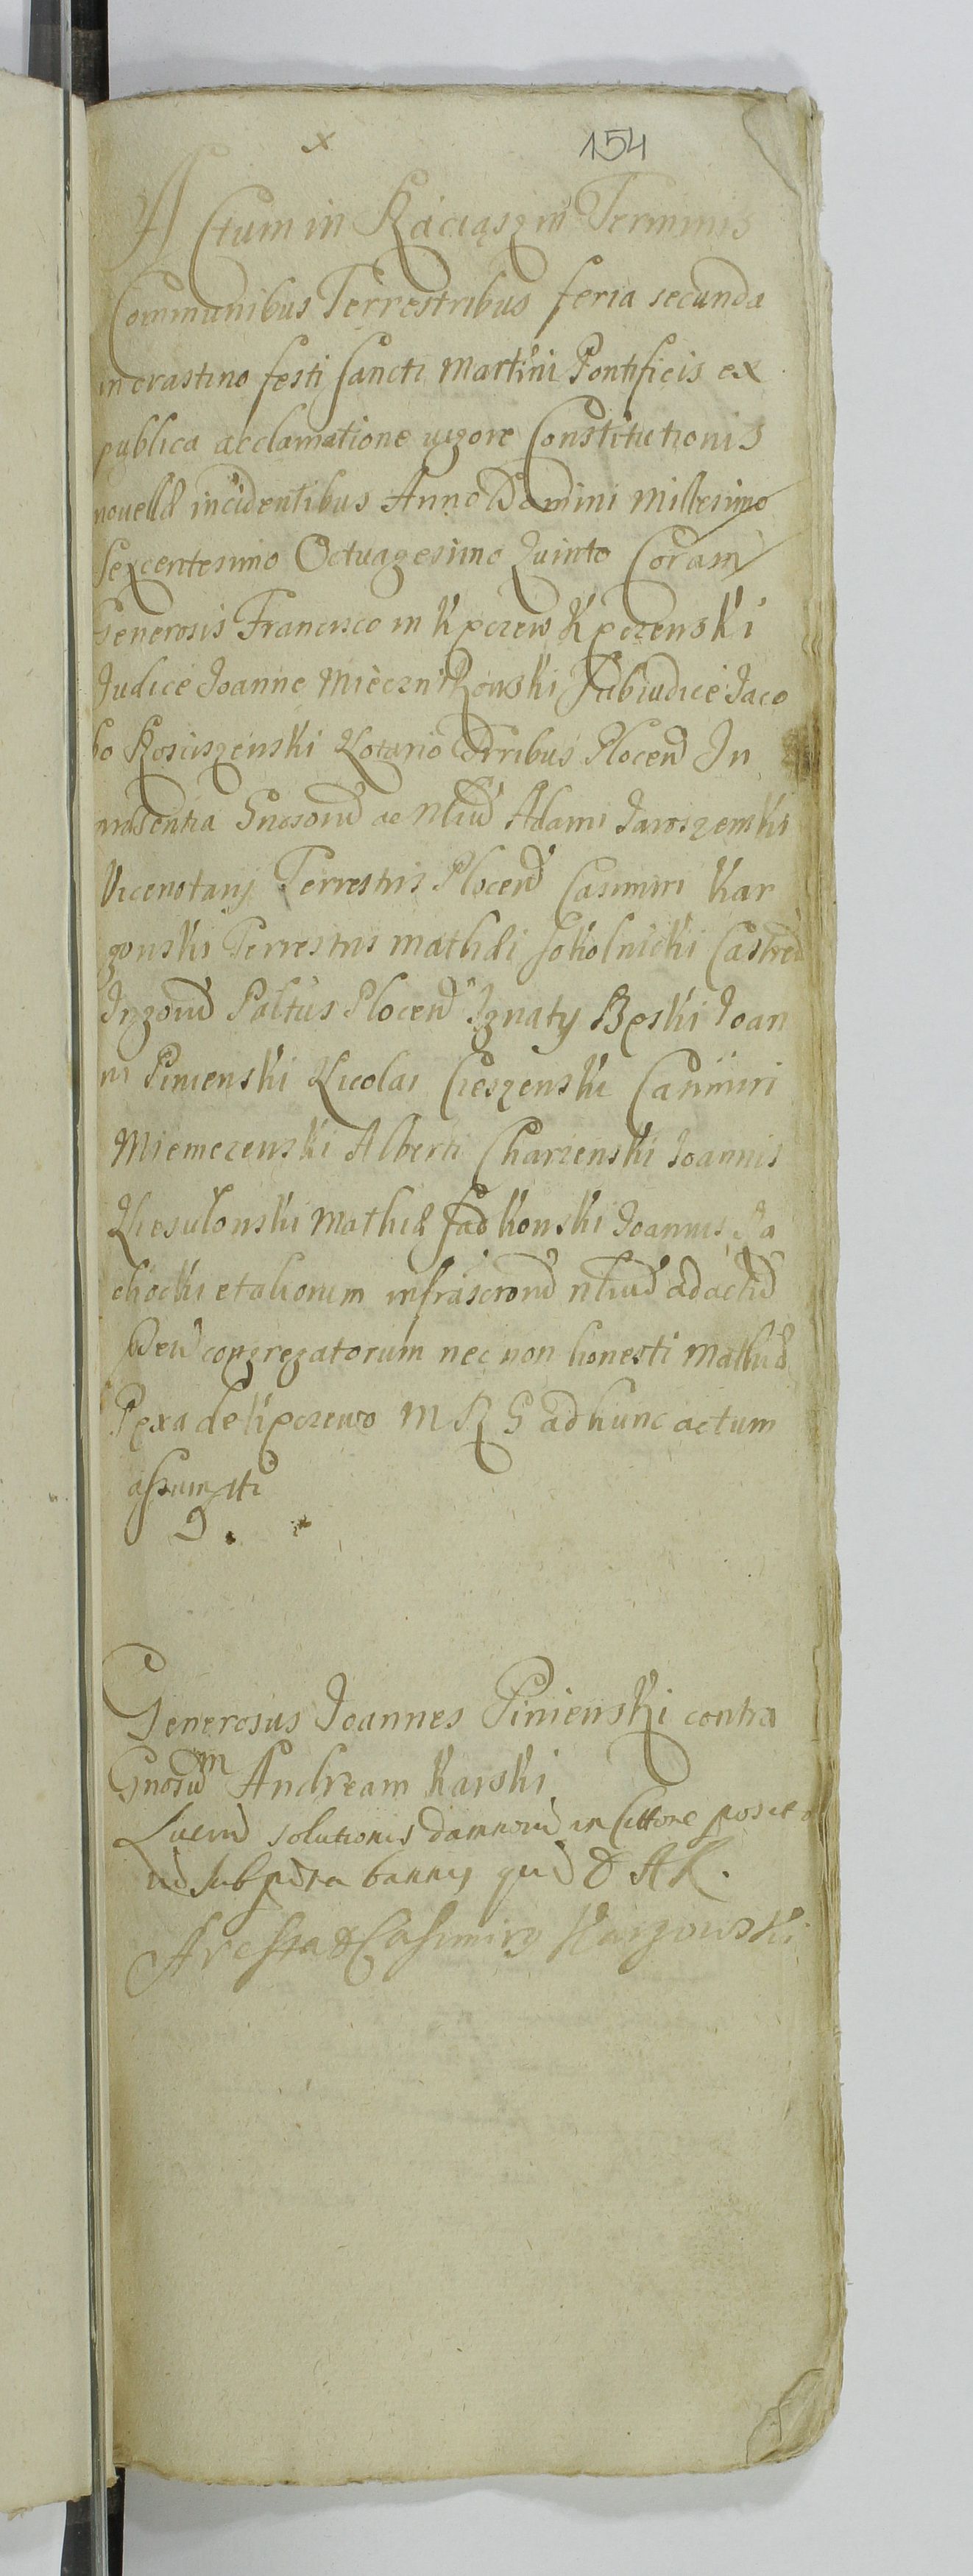 x
154
Actum in Raciąsz in Terminis
Communibus Terrestribus feria secunda
in crastino festi sancti Martini Pontificis ex
publica acclamatione uigore Constitutionis
nouellæ incidentibus Anno Domini Millesimo
sexcentesimo Octuagesimo Quinto Coram
Generosis Francisco in Kęczew Kęczewski
Judice Joanne Miecznikowski Subiudice Jaco
bo Kosciszewski Notario Trribus Plocen In
præsentia Gnrosoru ac Nliu Adami Jaroszewski
Vicenotarij Terrestris Plocen Casimiri Kar
gowski Terrestris Mathiæ Sokolnicki Castren
Plocen Ignaty Bęski Joan
nis Piniewski Nicolai Cieszewski Casimiri
Niemczewski Alberti Charzewski Joannis
Mathiæ Sadkowski Joannis Ra
chocki et aliorum infrascrorum nliu ad act
congregatorum nec non honesti Mathiæ
Pęxa de Kęczewo M R G ad hunc actum
assumpti
Generosus Joannes Piniewski contra
Gnosum Andream Karski
solutionis damnoru in
sub pæna bannis A K.
Casimiro Kargowski